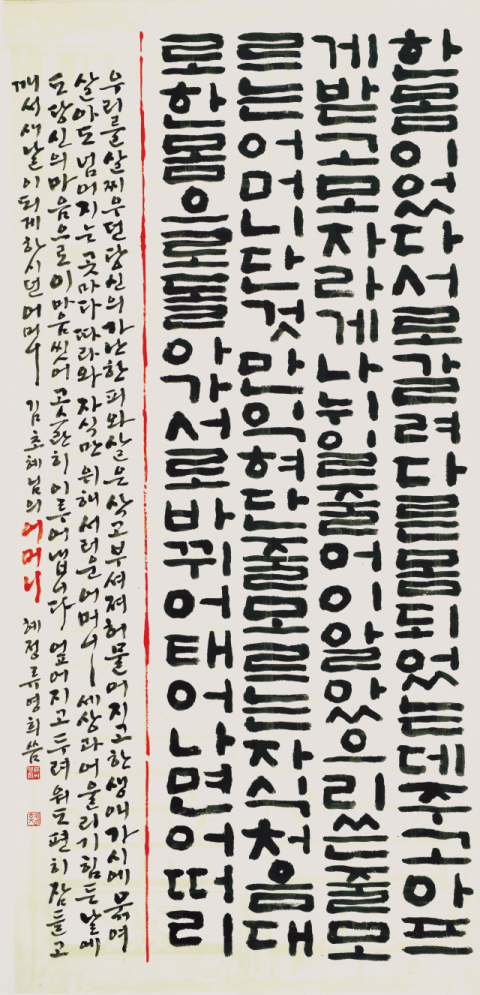 한몸이었다서로갈려다른몸되었는데주고아프
게받고모자라게나뉘일줄어이알았으리쓴줄모
르는어머니단것만익혀단줄모르는자식처음대
로한몸으로돌아가서로바뀌어태어나면어떠리
우리를 살찌우던 당신의 가난한 피와 살은 삭고 부셔져 허물어지고 한 생애 가시에 묶여
살아도 넘어지는 곳마다 따라와 자식만 위해 서러운 어머니 세상과 어울리기 힘든 날에
도 당신의 마음으로 이 마음 씻어 고스란히 이루어냅니다 엎어지고 두려워도 편히 잠들고
깨서 새날이 되게 하시던 어머니 김초혜님의 어머니 혜정 류영희 씀